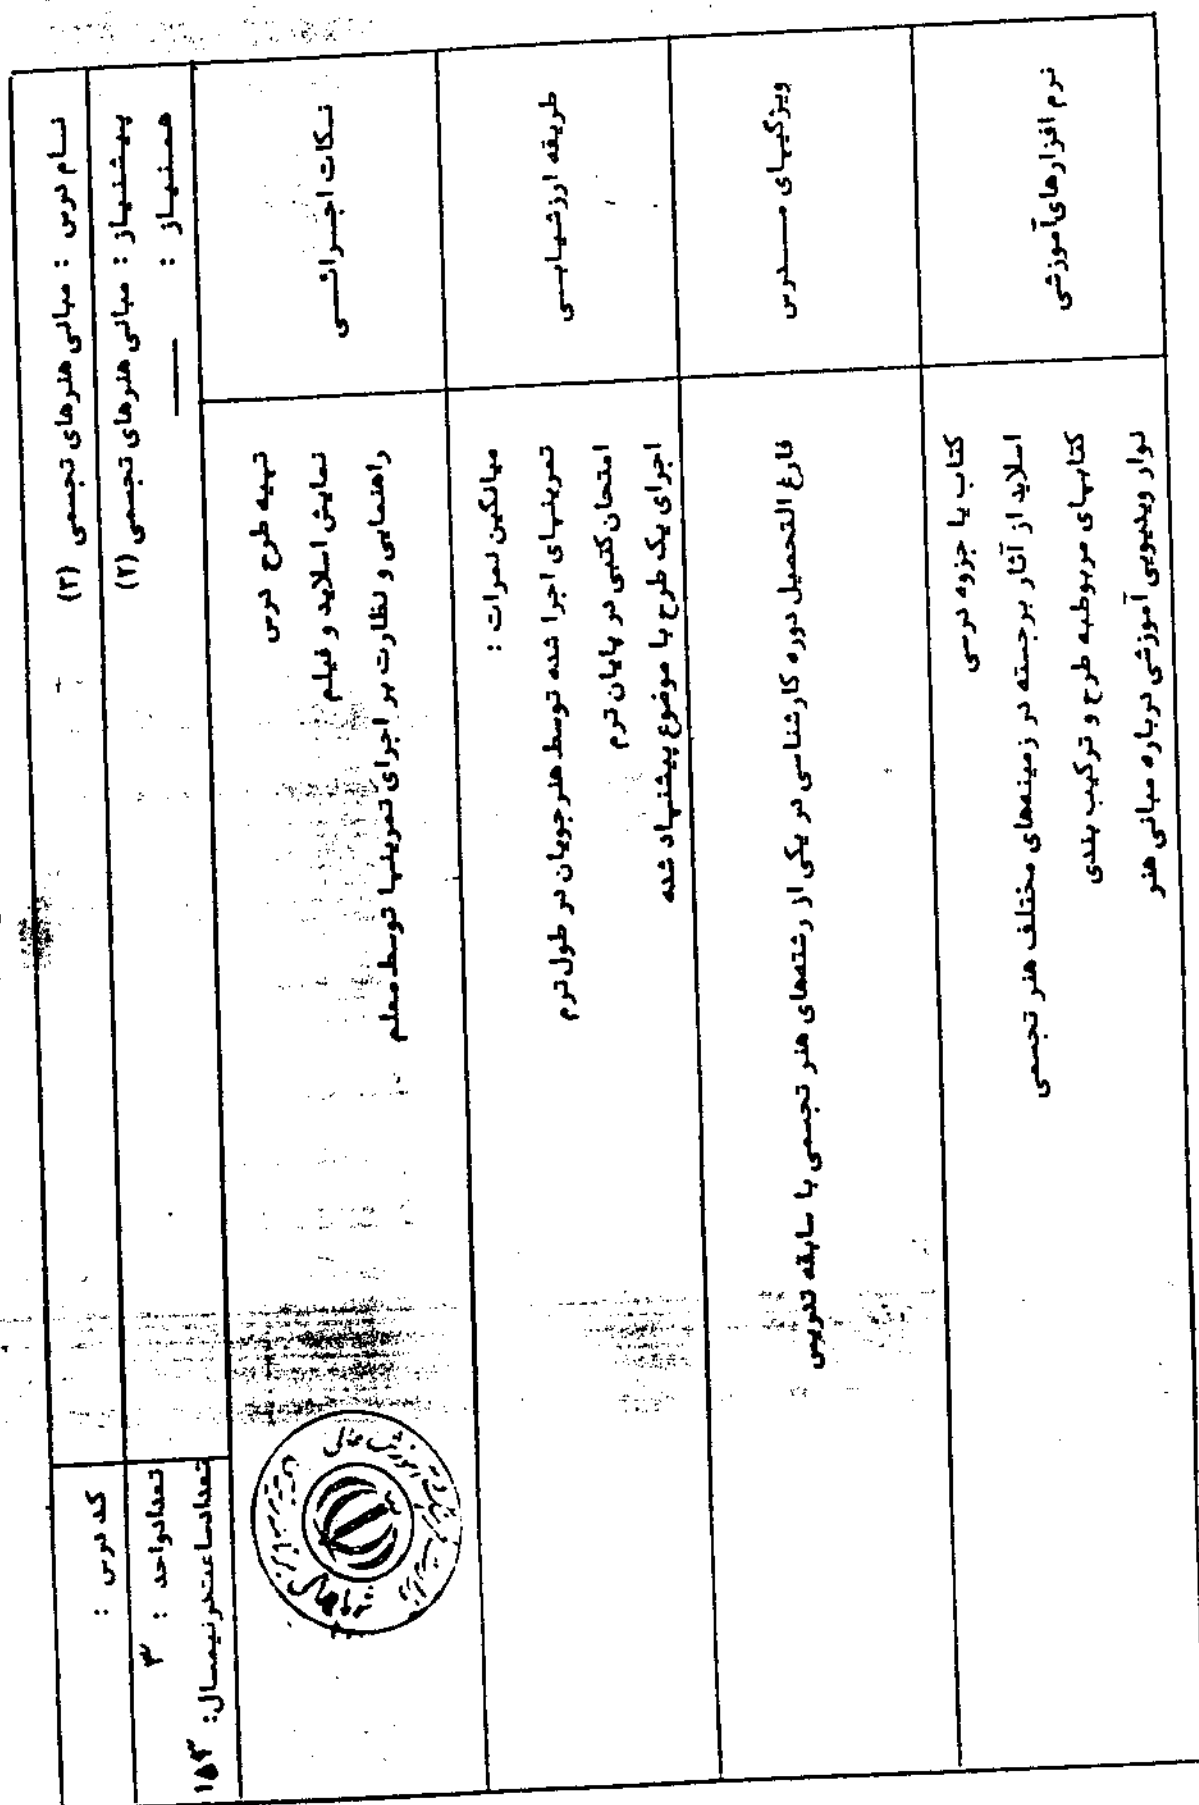 نام درس : مبانی هنرهای تجسمی (۳)
کد درس :
پیشنیاز : مبانی هنرهای تجسمی (۲)
تعداد واحد : ۳
همنیاز : —
تعداد ساعت در نیمسال : ۱۵۳
نکات اجرائی
تهیه طرح درس
نمایش اسلاید و فیلم
راهنمایی و نظارت بر اجرای تمرینها توسط معلم
طریقه ارزشیابی
میانگین نمرات :
تمرینهای اجرا شده توسط هنرجویان در طول ترم
امتحان کتبی در پایان ترم
اجرای یک طرح با موضوع پیشنهاد شده
ویژگیهای مدرس
فارغ التحصیل دوره کارشناسی در یکی از رشته‌های هنر تجسمی با سابقه تدریس
نرم افزارهای آموزشی
کتاب یا جزوه درسی
اسلاید از آثار برجسته در زمینه‌های مختلف هنر تجسمی
کتابهای مربوط به طرح و ترکیب بندی
نوار ویدیویی آموزشی درباره مبانی هنر